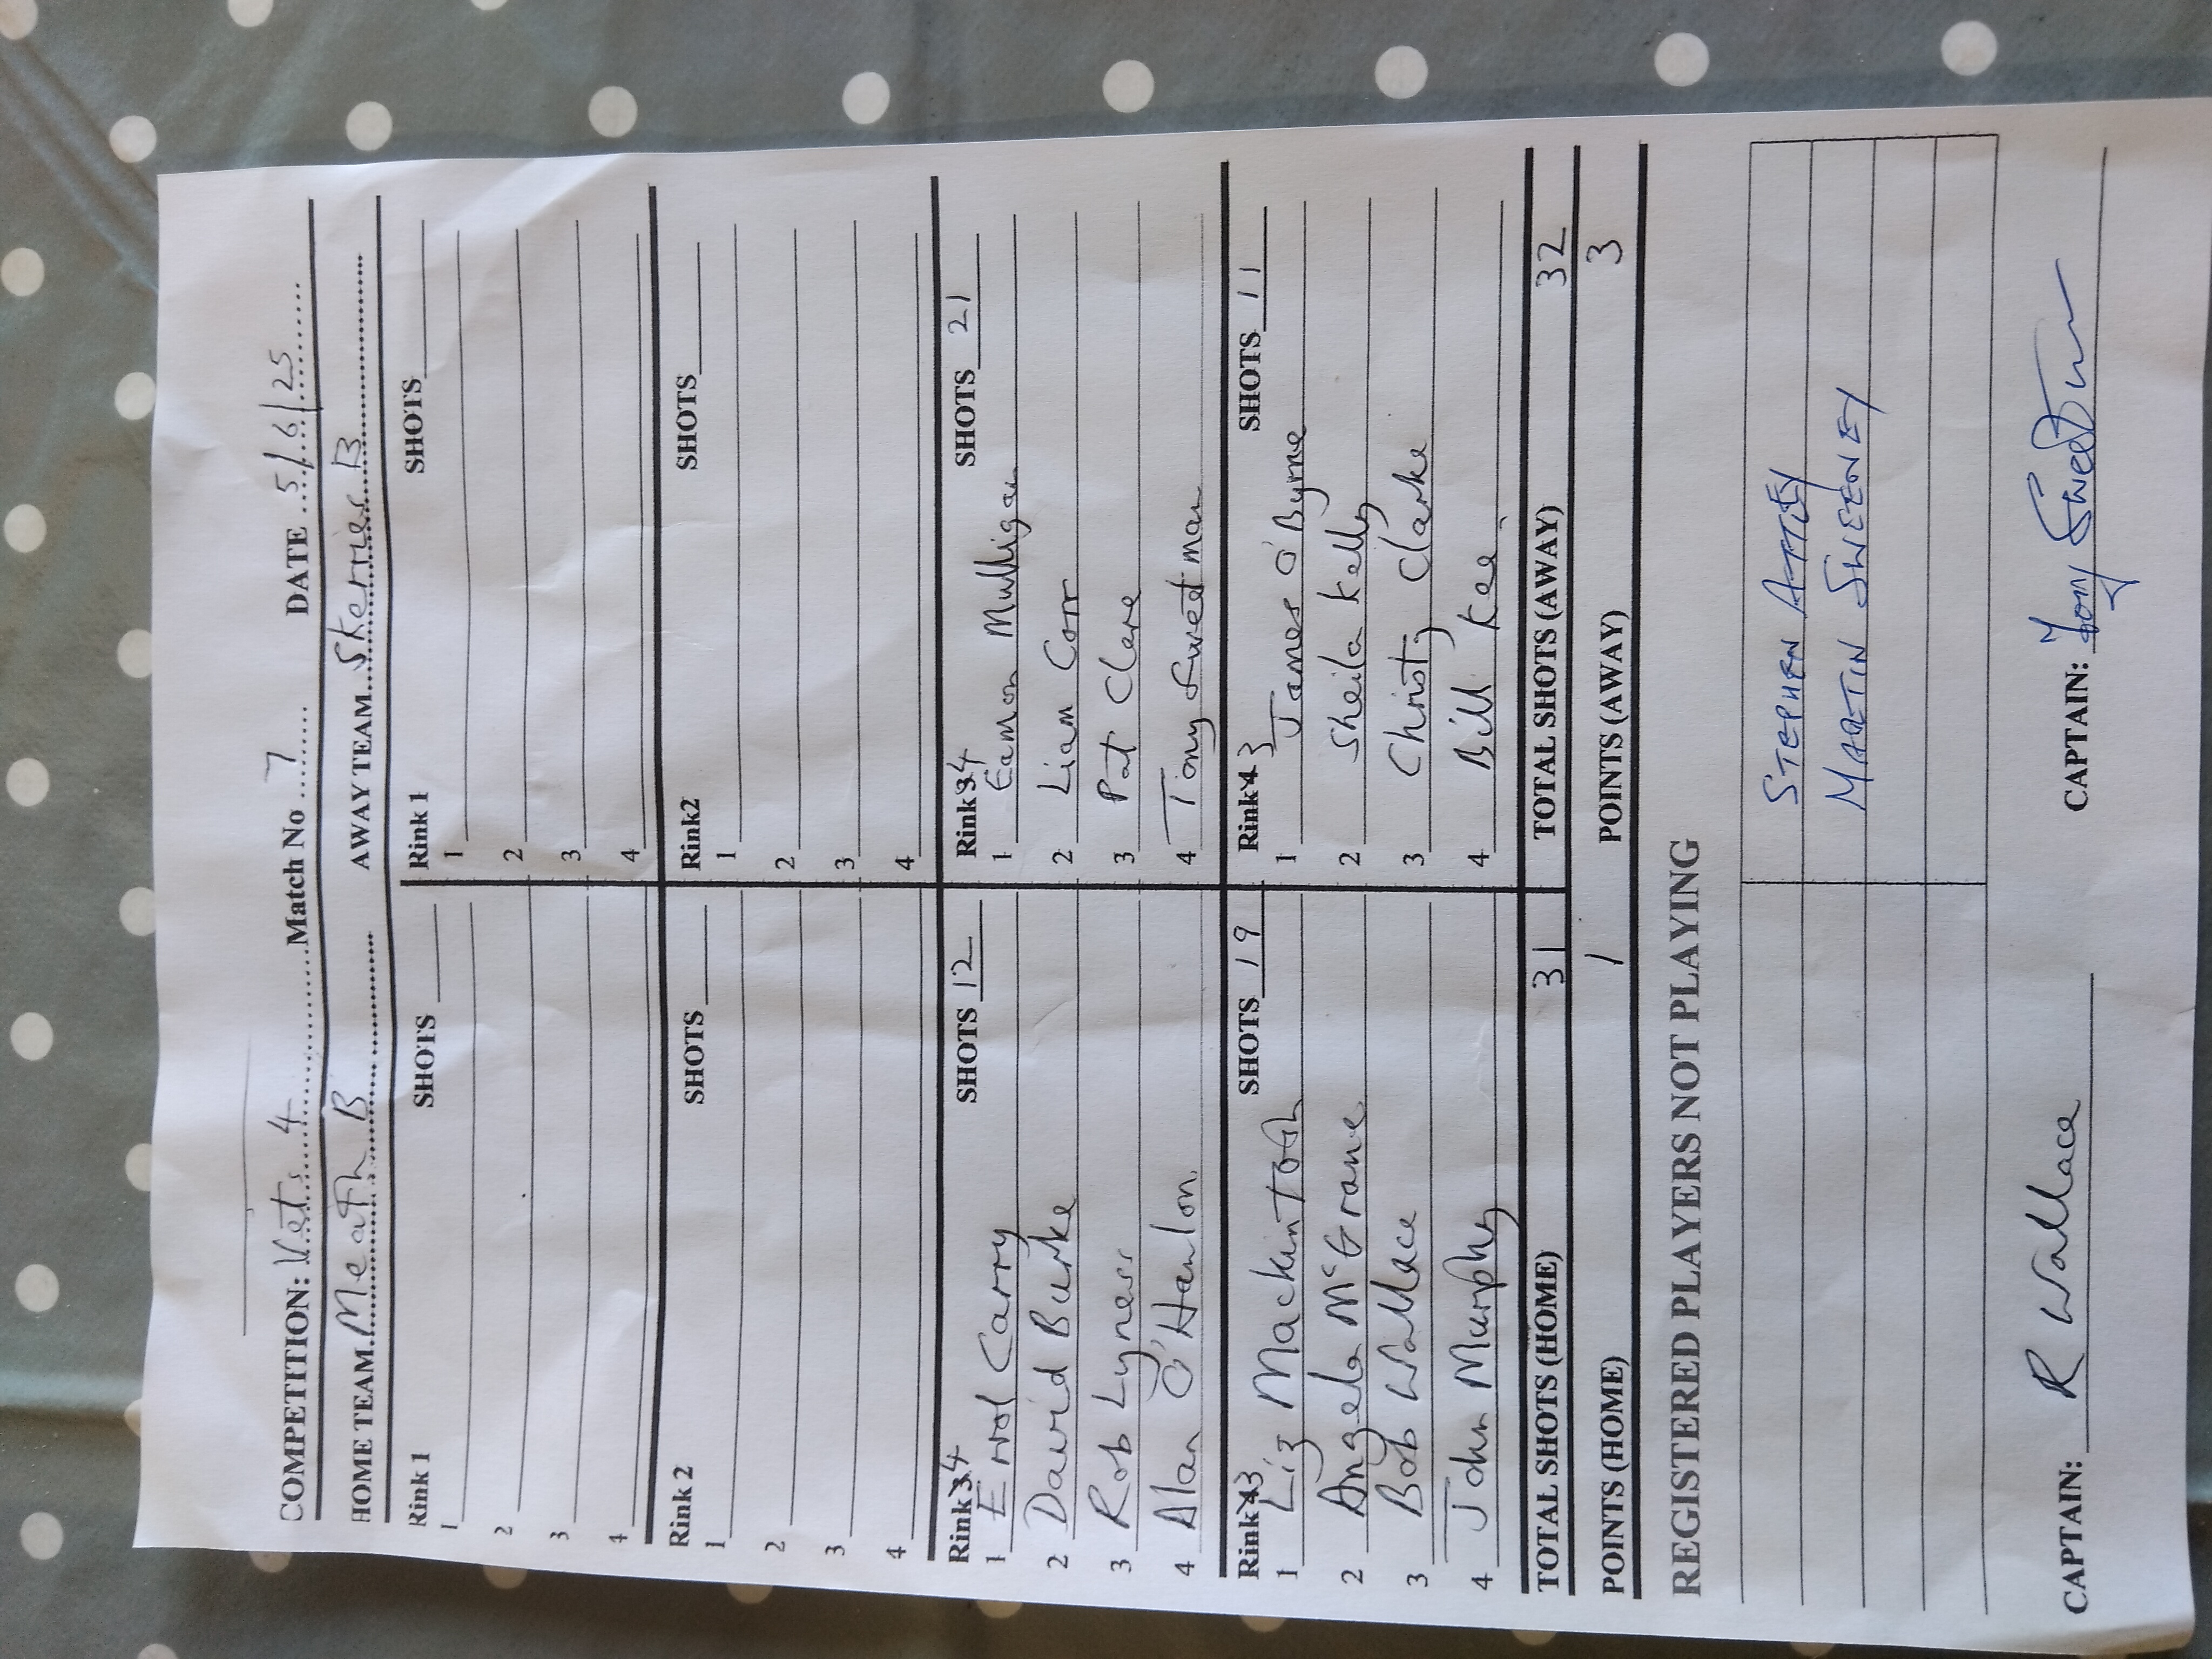 COMPETITION: Vets 4 Match No 7 DATE 5/6/25
HOME TEAM Meath B AWAY TEAM Skerries B
Rink 1 SHOTS Rink 1 SHOTS
1 1
2 2
3 3
4 4
Rink 2 SHOTS Rink2 SHOTS
1 1
2 2
3 3
4 4
Rink 4 SHOTS 12 Rink 4 SHOTS 21
1 Errol Carry 1 Eamon Mulligan
2 David Burke 2 Liam Corr
3 Rob Lyness 3 Pat Clare
4 Alan O'Hanlon 4 Tony Sweetman
Rink 3 SHOTS 19 Rink 3 SHOTS 11
1 Liz Mackintosh 1 James O'Byrne
2 Angela McGrane 2 Sheila Kelly
3 Bob Wallace 3 Christy Clarke
4 John Murphy 4 Bill Kee
TOTAL SHOTS (HOME) 31 TOTAL SHOTS (AWAY) 32
POINTS (HOME) 1 POINTS (AWAY) 3
REGISTERED PLAYERS NOT PLAYING
STEPHEN ATTLEY
MARTIN SWEENEY
CAPTAIN: R Wallace CAPTAIN: Tony Sweetman